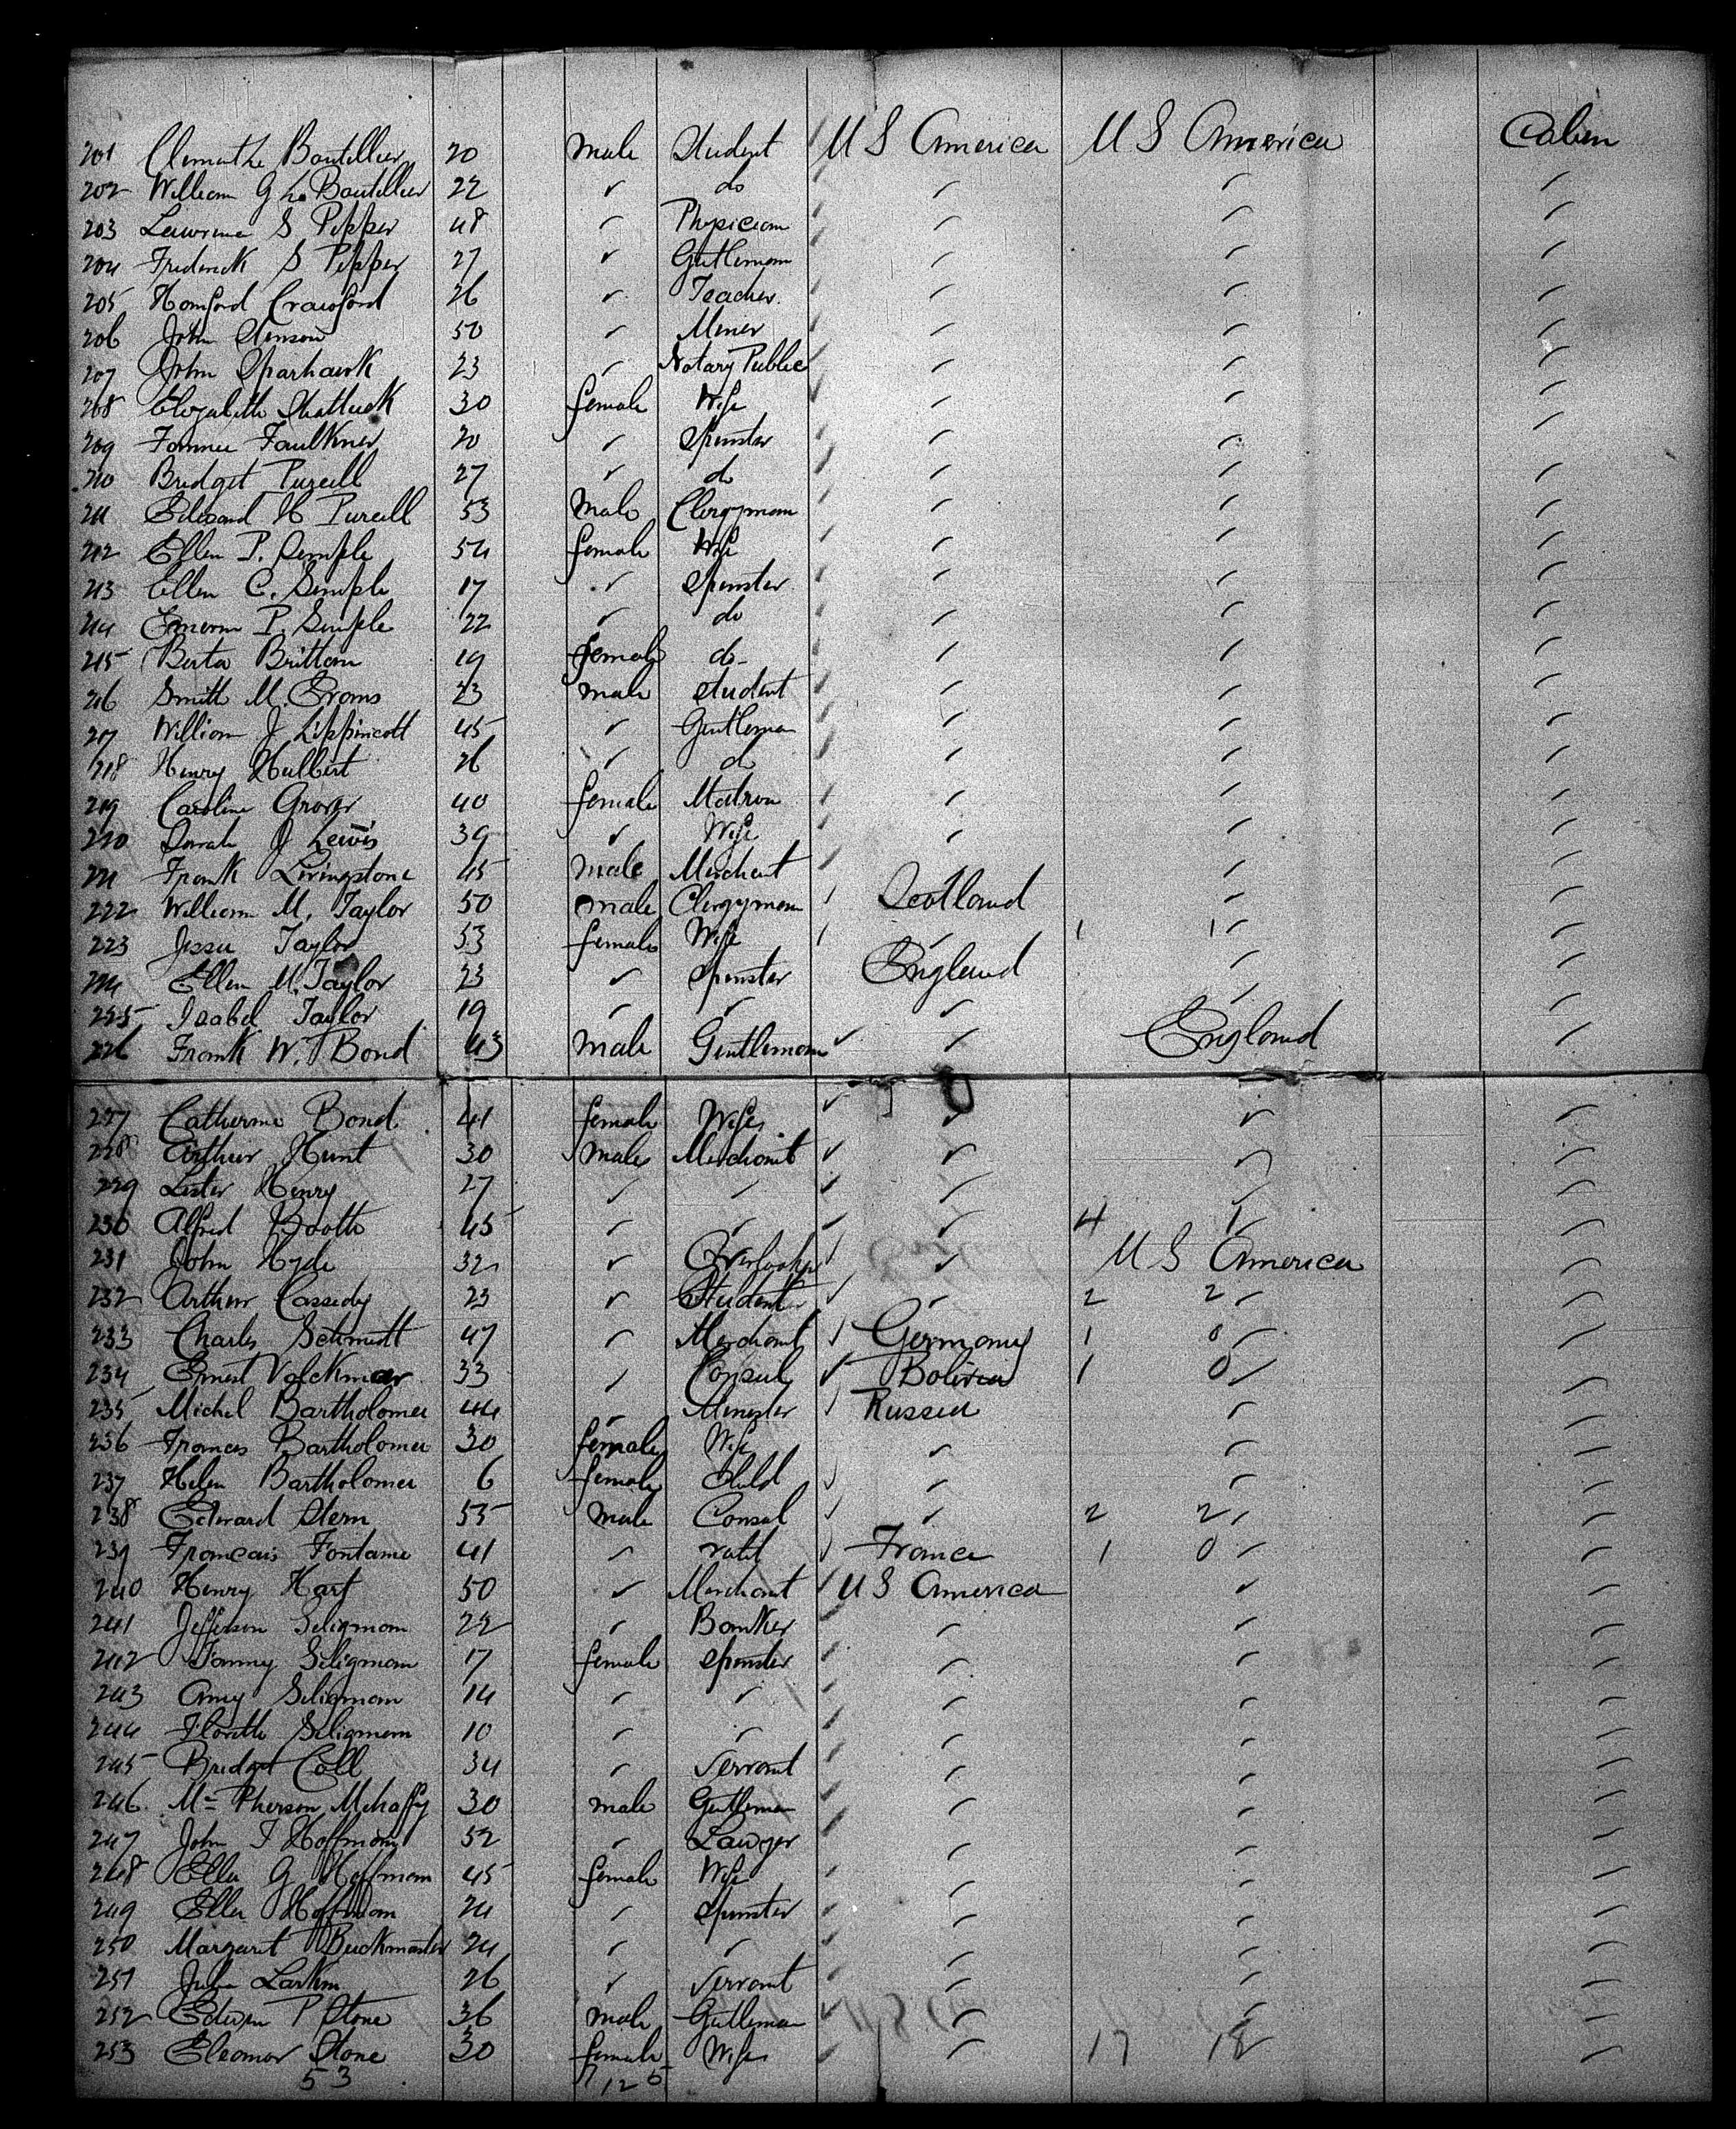 201 Boutellier 20 male Student U S America U S America Cabin
202 William G Le Boutellier 22 ✓ do ✓ ✓ ✓
203 Lawrence S Pepper 48 ✓ Physician ✓ ✓ ✓
204 Frederick S Pepper 27 ✓ Gentleman ✓ ✓ ✓
205 Crawford 26 ✓ Teacher ✓ ✓ ✓
206 John Stinson 50 ✓ Miner ✓ ✓ ✓
207 John Sparhawk 23 ✓ Notary Public ✓ ✓ ✓
208 Elizabeth Shattuck 30 female Wife ✓ ✓ ✓
209 Fannie Faulkner 20 ✓ Spinster ✓ ✓ ✓
210 Bridget Purcell 27 ✓ do ✓ ✓ ✓
211 Edward H Purcell 53 male Clergyman ✓ ✓ ✓
212 Ellen P. Semple 54 female Wife ✓ ✓ ✓
213 Ellen C. Semple 17 ✓ Spinster ✓ ✓ ✓
214 P. Semple 22 ✓ do ✓ ✓ ✓
215 Berta Brittan 19 female do ✓ ✓ ✓
216 Smith M. 23 male Student ✓ ✓ ✓
217 William J Lippincott 45 ✓ Gentleman ✓ ✓ ✓
218 Henry Hulbert 26 ✓ do ✓ ✓ ✓
219 Caroline Grover 40 female Matron ✓ ✓ ✓
220 Sarah J Lewis 39 ✓ Wife ✓ ✓ ✓
221 Frank Livingstone 45 male Merchant ✓ ✓
222 William M. Taylor 50 male Clergyman Scotland ✓ ✓
223 Jessie Taylor 53 female Wife ✓ 1 1 ✓ ✓
224 Ellen M. Taylor 23 ✓ Spinster England ✓ ✓
225 Isabel Taylor 19 ✓ ✓ ✓ ✓ ✓
226 Frank W. Bond 43 male Gentleman ✓ ✓ England ✓
227 Catherine Bond 41 female Wife ✓ ✓ ✓ ✓
228 Arthur Hunt 30 male Merchant ✓ ✓ ✓ ✓
229 Lister Henry 27 ✓ ✓ ✓ ✓ ✓ ✓
230 Alfred Booth 45 ✓ ✓ ✓ ✓ 4 1 ✓
231 John Hyde 32 ✓ Overlooker ✓ ✓ U S America ✓
232 Arthur Cassedy 23 ✓ Student ✓ ✓ 2 2 ✓ ✓
233 Charles Schmidt 47 ✓ Merchant ✓ Germany 1 0 ✓ ✓
234 Ernest Volckmar 33 ✓ Consul ✓ Bolivia 1 0 ✓ ✓
235 Michel Bartholomei 44 ✓ Minister ✓ Russia ✓ ✓
236 Frances Bartholomei 30 female Wife ✓ ✓ ✓
237 Helen Bartholomei 6 female Child ✓ ✓ ✓ ✓
238 Edward Stern 55 male Consul ✓ ✓ 2 2 ✓ ✓
239 Francais Fontaine 41 ✓ ✓ France 1 0 ✓ ✓
240 Henry Hart 50 ✓ Merchant ✓ U S America ✓ ✓
241 Jefferson Seligman 22 ✓ Banker ✓ ✓ ✓
242 Fanny Seligman 17 female Spinster ✓ ✓ ✓
243 Amy Seligman 14 ✓ ✓ ✓ ✓ ✓
244 Florette Seligman 10 ✓ ✓ ✓ ✓ ✓
245 Bridget Coll 34 ✓ Servant ✓ ✓ ✓
246 Mc Pherson Mehaffy 30 male Gentleman ✓ ✓ ✓
247 John T Hoffman 52 ✓ Lawyer ✓ ✓ ✓
248 Ella G Hoffman 45 female Wife ✓ ✓ ✓
249 Ella Hoffman 24 ✓ Spinster ✓ ✓ ✓
250 Margaret Buckmaster 24 ✓ ✓ ✓ ✓ ✓
251 Julia Larkin 26 ✓ Servant ✓ ✓ ✓
252 Edwin P Stone 36 male Gentleman ✓ ✓ ✓ ✓
253 Eleanor Stone 30 female Wife ✓ 17 18 ✓
53